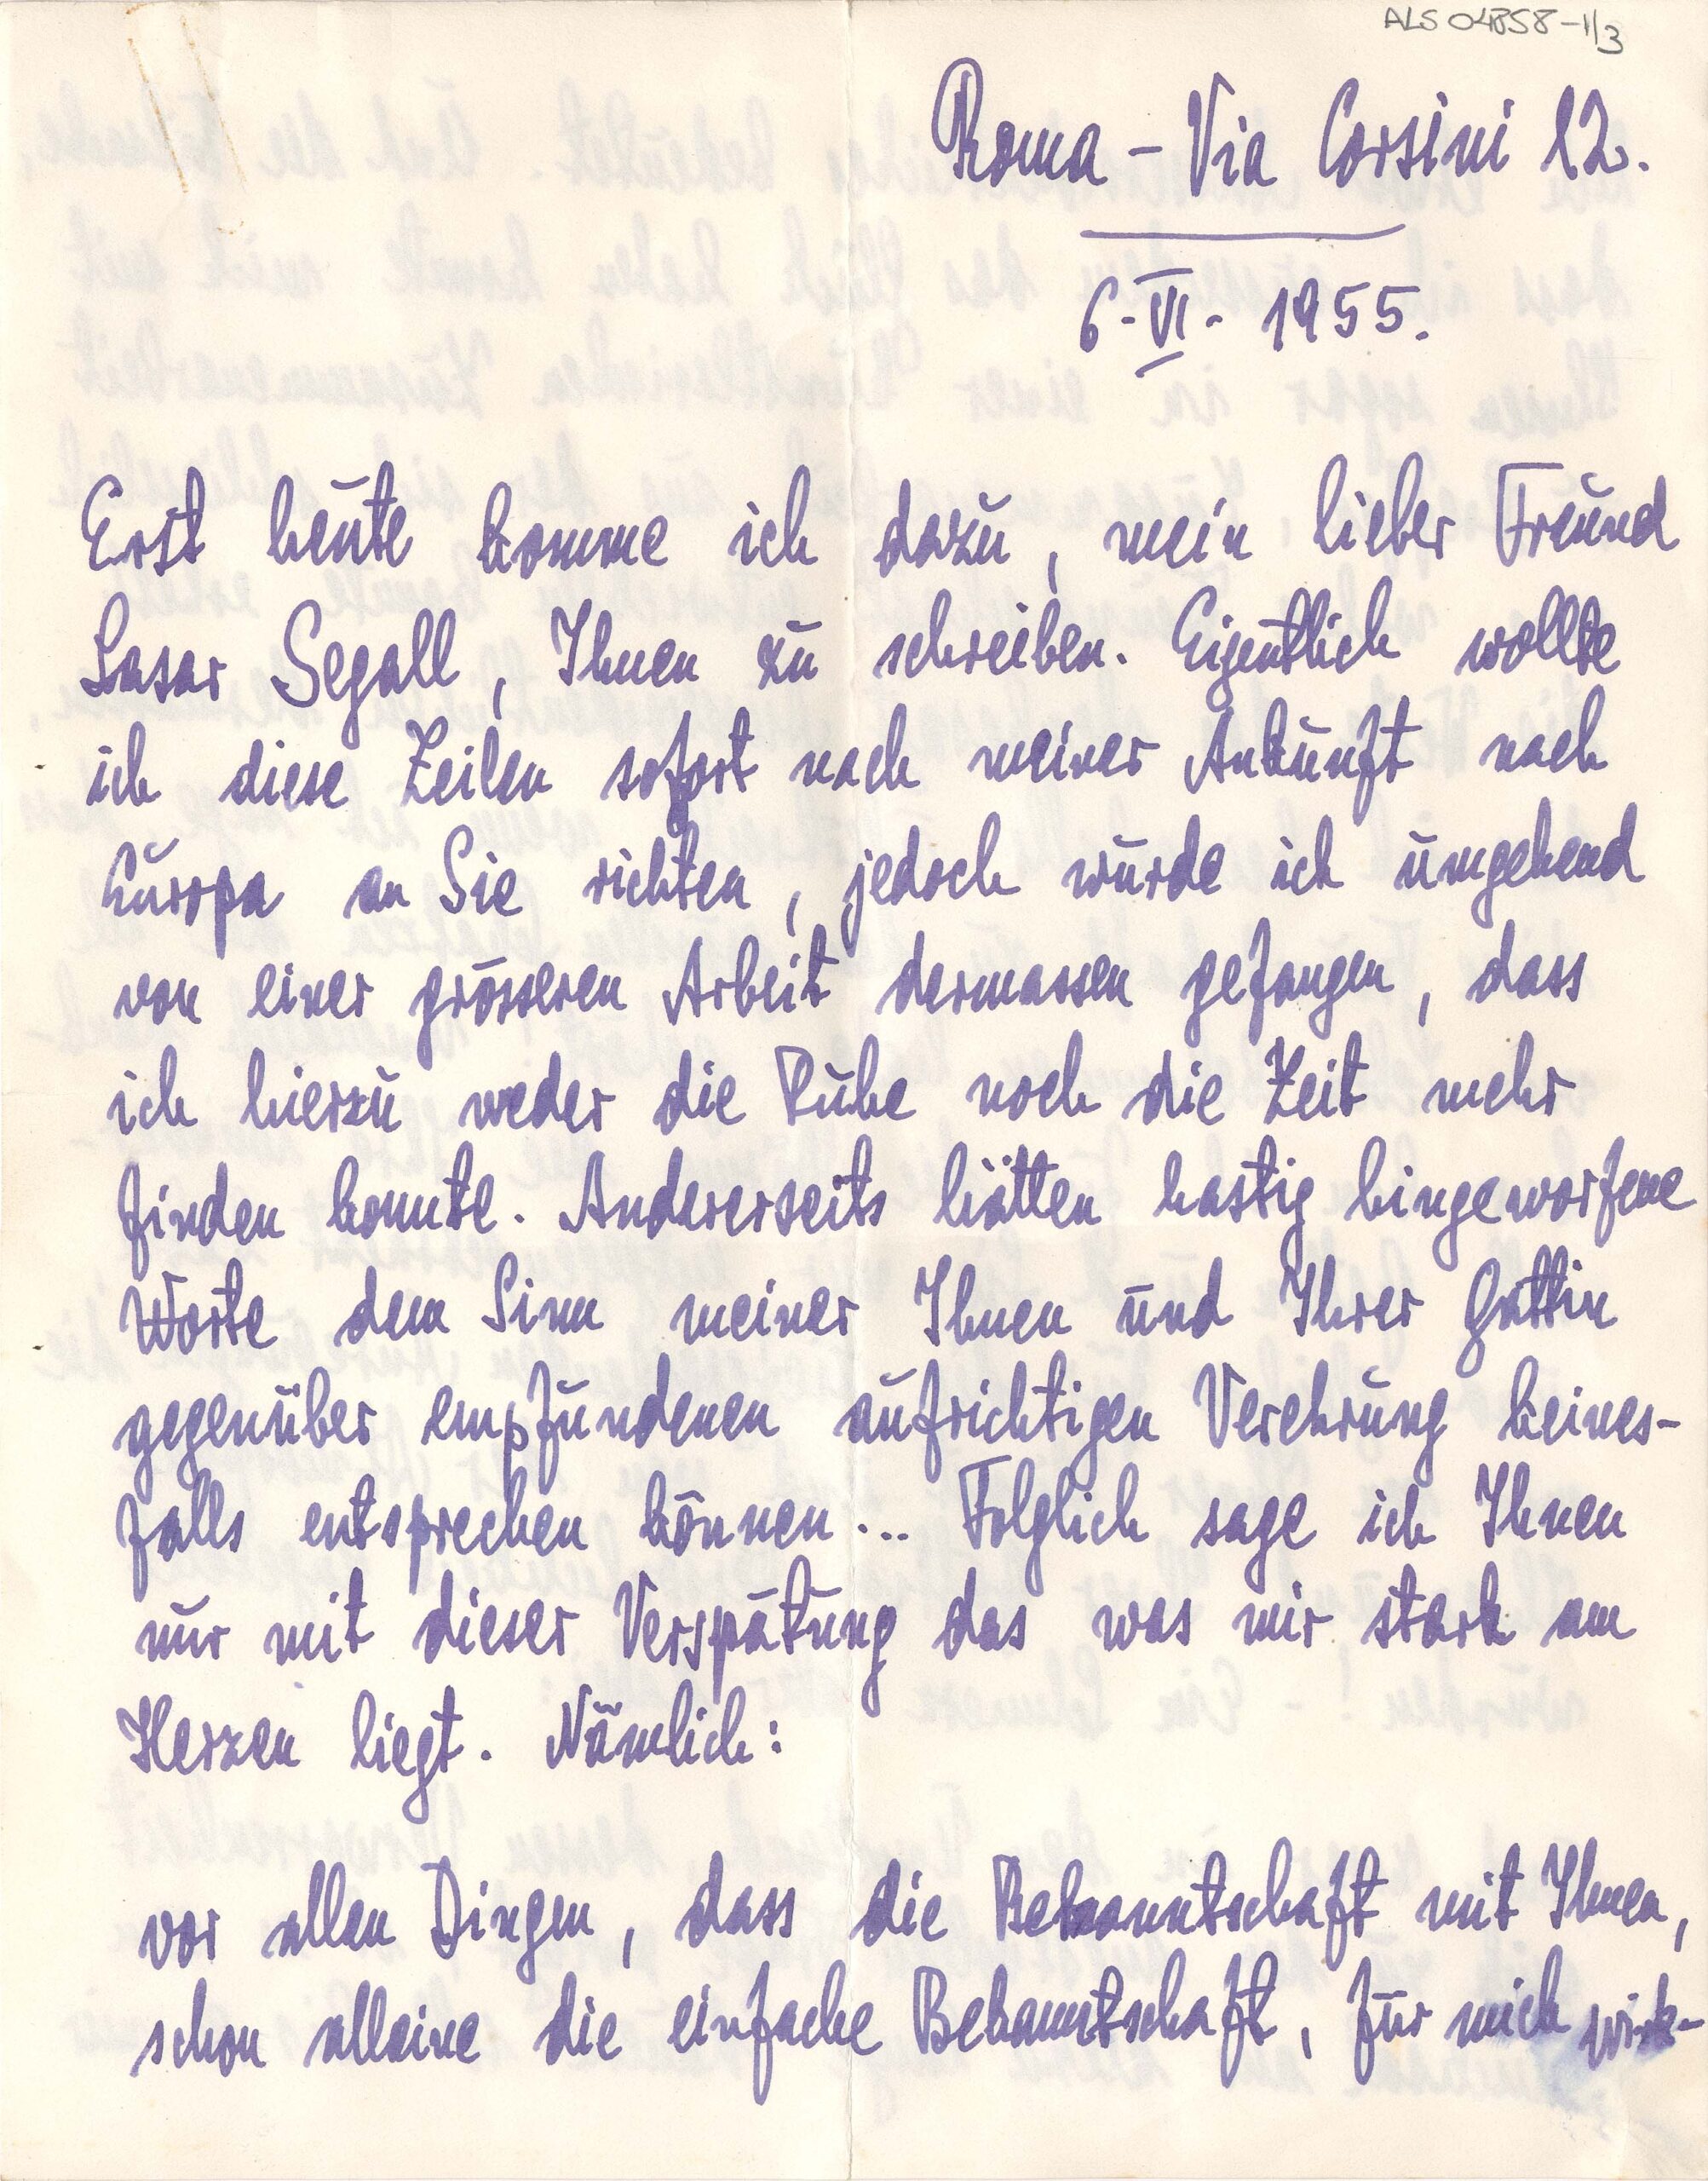 ALS 04858-1/3
Roma - Via Corsini 12.
6-VI- 1955.
Erst heute komme ich dazu, mein lieber Freund
Lasar Segall, Ihnen zu schreiben. Eigentlich wollte
ich diese Zeilen sofort nach meiner Ankunft nach
Europa an Sie richten, jedoch wurde ich umgehend
von einer grösseren Arbeit dermassen gefangen, dass
ich hierzu weder die Ruhe noch die Zeit mehr
finden konnte. Andererseits hätten hastig hingeworfene
Worte dem Sinn meiner Ihnen und Ihrer Gattin
gegenüber empfundenen aufrichtigen Verehrung keines-
falls entsprechen können... Folglich sage ich Ihnen
nur mit dieser Verspätung das was mir stark am
Herzen liegt. Nämlich:
vor allen Dingen, dass die Bekanntschaft mit Ihnen,
schon alleine die einfache Bekanntschaft, für mich wirk-